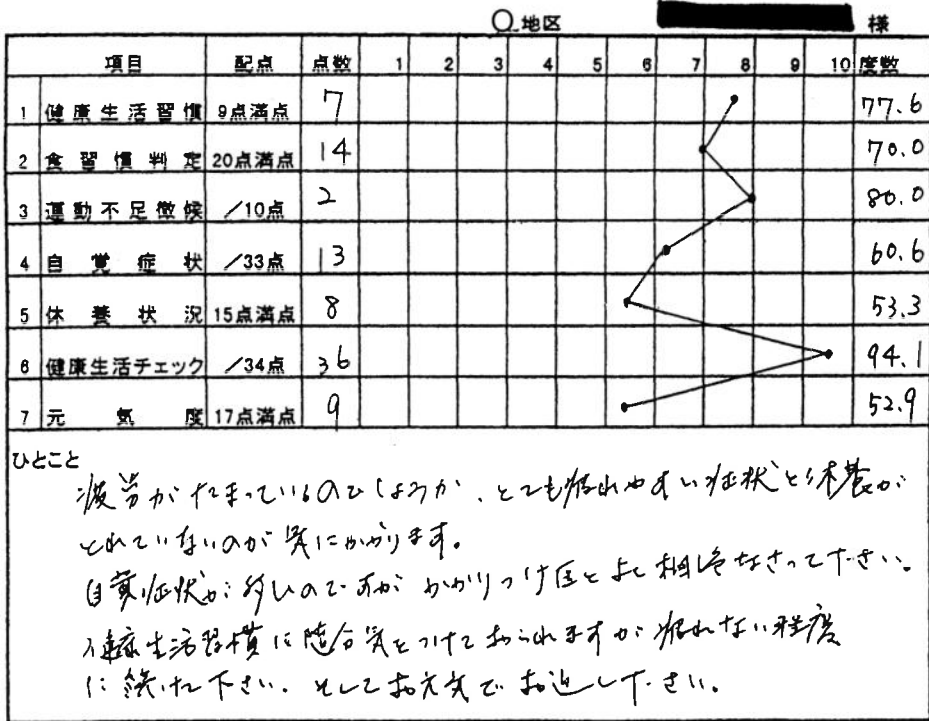 O地区 様
項目 配点 点数 1 2 3 4 5 6 7 8 9 10 度数
1 健康生活習慣 9点満点 7 77.6
2 食習慣判定 20点満点 14 70.0
3 運動不足徴候 /10点 2 80.0
4 自覚症状 /33点 13 60.6
5 休養状況 15点満点 8 53.3
6 健康生活チェック /34点 36 94.1
7 元気度 17点満点 9 52.9
ひとこと
疲労がたまっているのでしょうか、とても疲れやすい症状と休養が
とれていないのが気にかかります。
自覚症状が多いのですが かかりつけ医とよく相談なさって下さい。
健康生活習慣に随分気をつけておられますが疲れない程度
に続けて下さい。そしてお元気でお過し下さい。